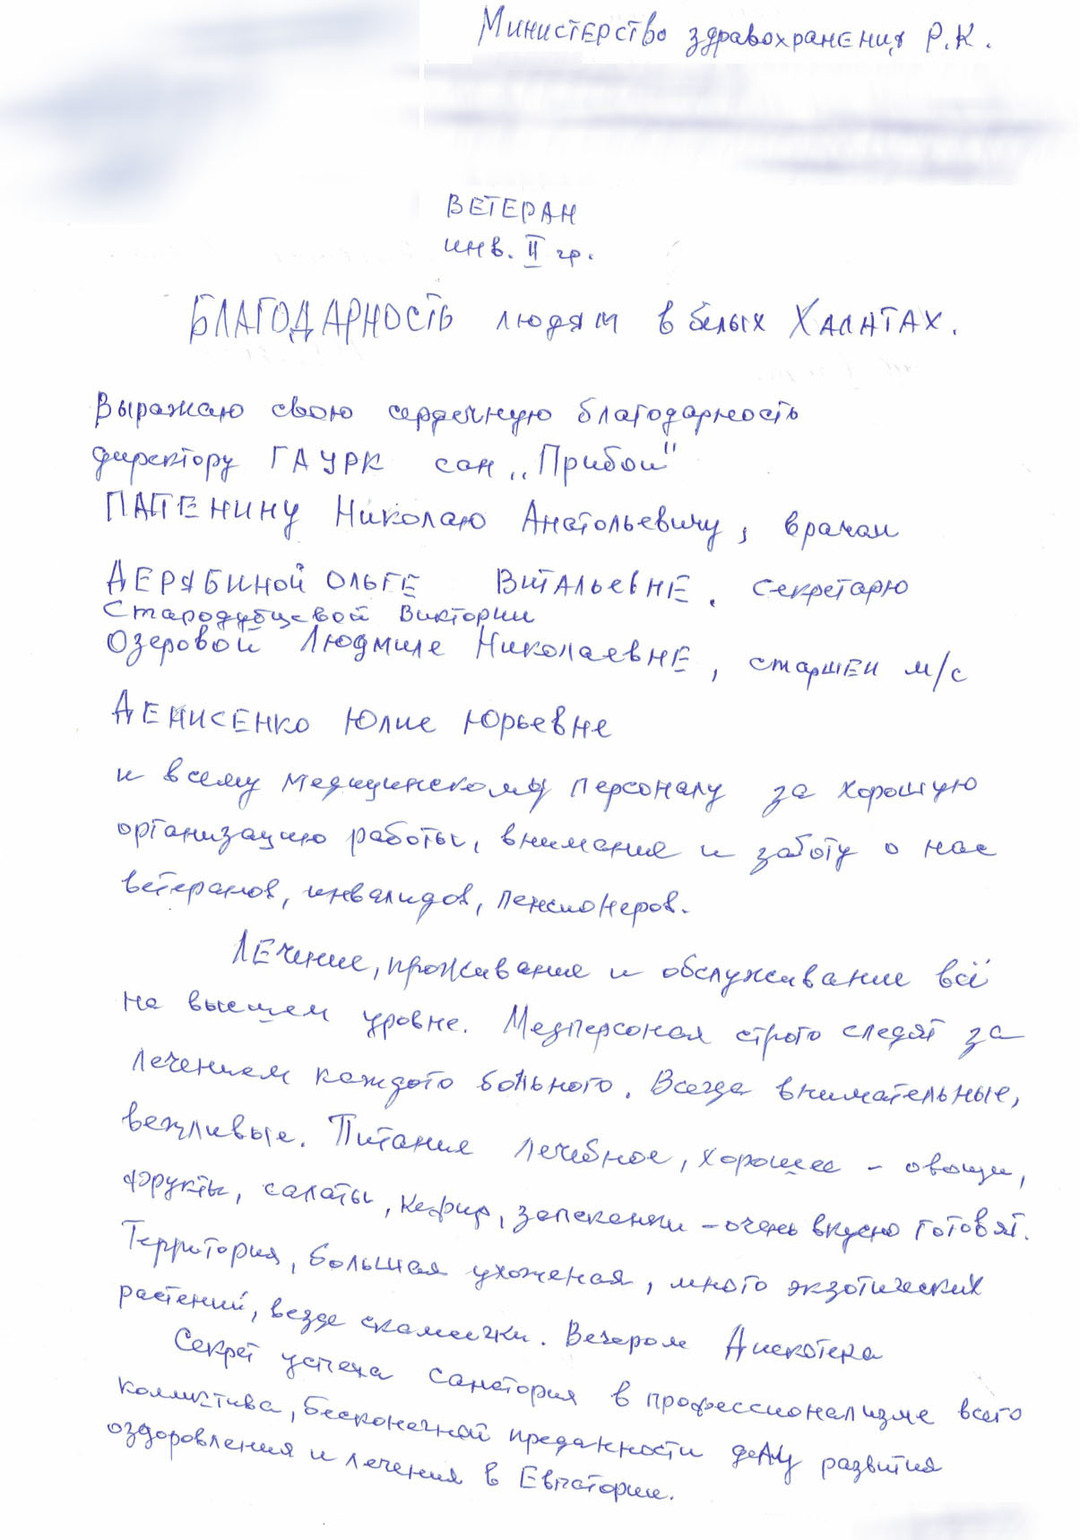 Министерство здравохранения Р.К.
ВЕТЕРАН
инв. II гр.
БЛАГОДАРНОСТЬ людям в белых ХАЛАТАХ.
Выражаю свою сердечную благодарность
директору ГАУРК сан „Прибой"
ПАПЕНИНУ Николаю Анатольевичу, врачам
ДЕРЯБИНОЙ ОЛЬГЕ ВИТАльевНЕ. секретарю
Стародубцевой Виктории
Озеровой Людмиле Николаевне, старшей м/с
ДЕНИСЕНКО Юлие Юрьевне
и всему медицинскому персоналу за хорошую
организацию работы, внимание и заботу о нас
ветеранов, инвалидов, пенсионеров.
Лечение, проживание и обслуживание всё
на высшем уровне. Медперсонал строго следят за
лечением каждого больного. Всегда внимательные,
вежливые. Питание лечебное, хорошее - овощи,
фрукты, салаты, кефир, запеканки - очень вкусно готовят.
Территория, большая ухоженая, много экзотических
растений, везде скамеечки. Вечером Дискотека
Секрет успеха санатория в профессионализме всего
коллектива, бесконечной преданности делу развития
оздоровления и лечения в Евпатории.